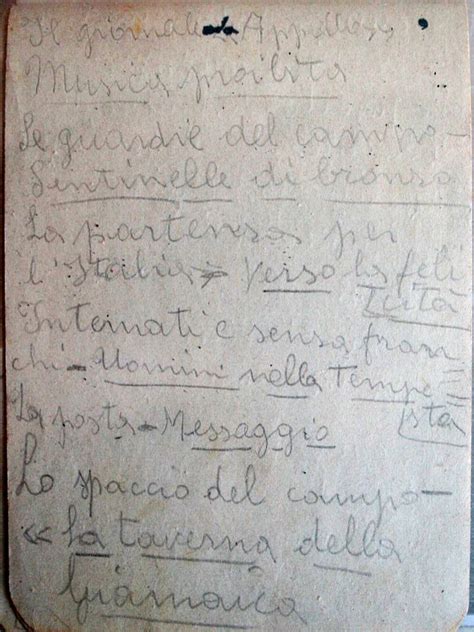 Il giornale « Appello »
Musica proibita
Le guardie del campo –
Sentinelle di bronzo
La partenza per
l'Italia – Verso la feli
cità
Internati e senza fran
chi – Uomini nella Tempe
sta
La posta – Messaggio
Lo spaccio del campo –
« La taverna della
Giamaica